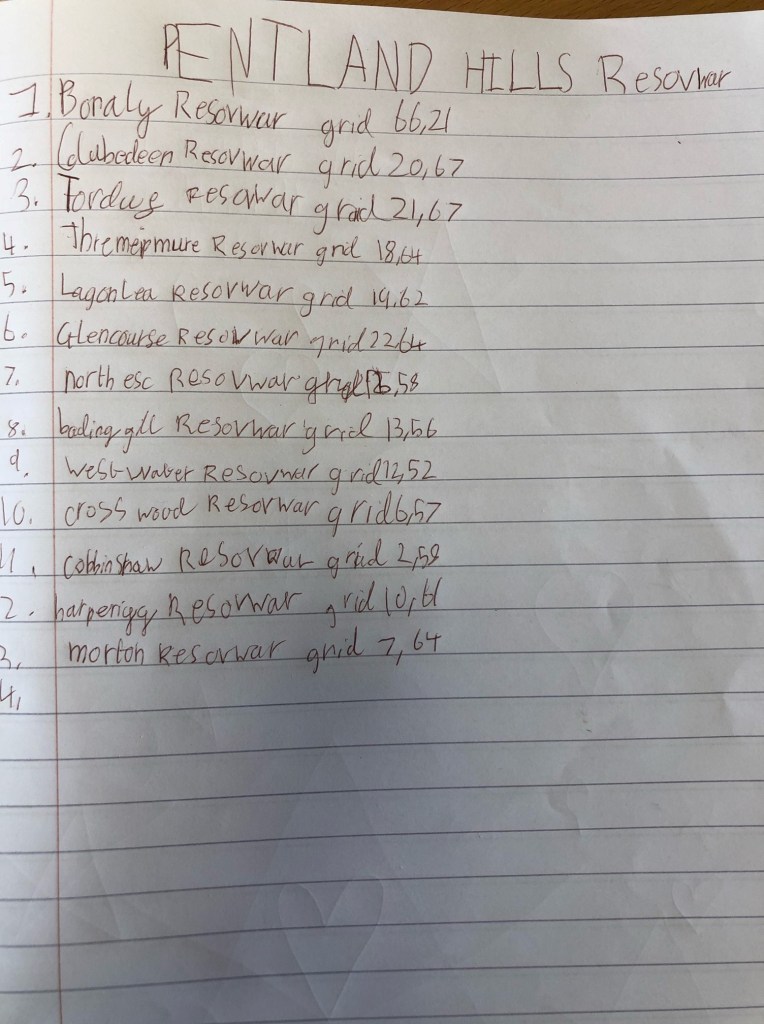 PENTLAND HILLS Resovwar
1. Bonaly Resorwar grid 66,21
2. Clubedeen Resovwar grid 20,67
3. Torduf Resovwar graid 21,67
4. Thremeipmure Resorwar grid 18,64
5. Laganlea Resorvwar grid 19,62
6. Glencourse Resovwar grid 22 64
7. north esc Resovwar 58
8. badinggill Resovwar grid 13,56
9. West water Resovwar grid 12,52
10. cross wood Resorwar grid 6,57
11. cobbinshaw Resorwar graid 2,58
2. harperigg Resorwar grid 10,61
3. morton Resorwar grid 7,64
4,